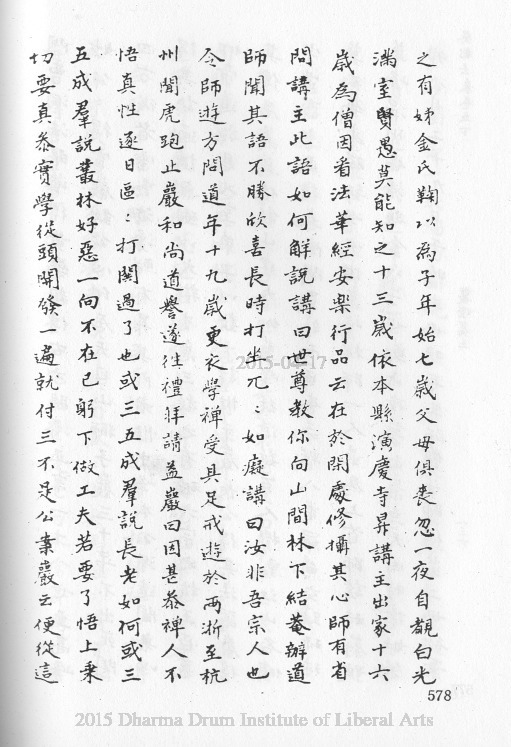 之有娣金氏鞠以為子年始七歲父母俱喪忽一夜自覩白光
滿室賢愚莫能知之十三歲依本縣演慶寺昇講主出家十六
歲為僧因看法華經安樂行品云在於閑處修攝其心師有省
問講主此語如何解說講曰世尊教你向山間林下結菴辦道
師聞其語不勝欣喜長時打坐兀〻如癡講曰汝非吾宗人也
令師遊方問道年十九歲更衣學禪受具足戒遊於兩浙至杭
州聞虎跑止巖和尚道譽遂往禮拜請益巖曰因甚叅禪人不
悟真性逐日區〻打閧過了也或三五成羣說長老如何或三
五成羣說叢林好惡一向不在己躬下做工夫若要了悟上乗
切要真叅實學從頭開發一遍就付三不是公案巖云便從這
578
2015-04-17
2015 Dharma Drum Institute of Liberal Arts